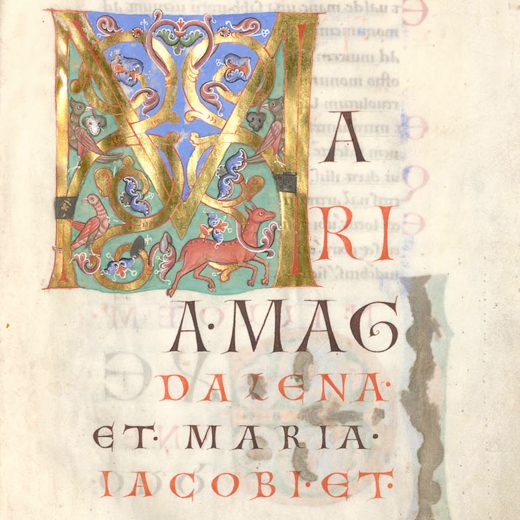 MA
RI
A·MAG
DALENA·
ET· MARIA·
IACOBI·ET·